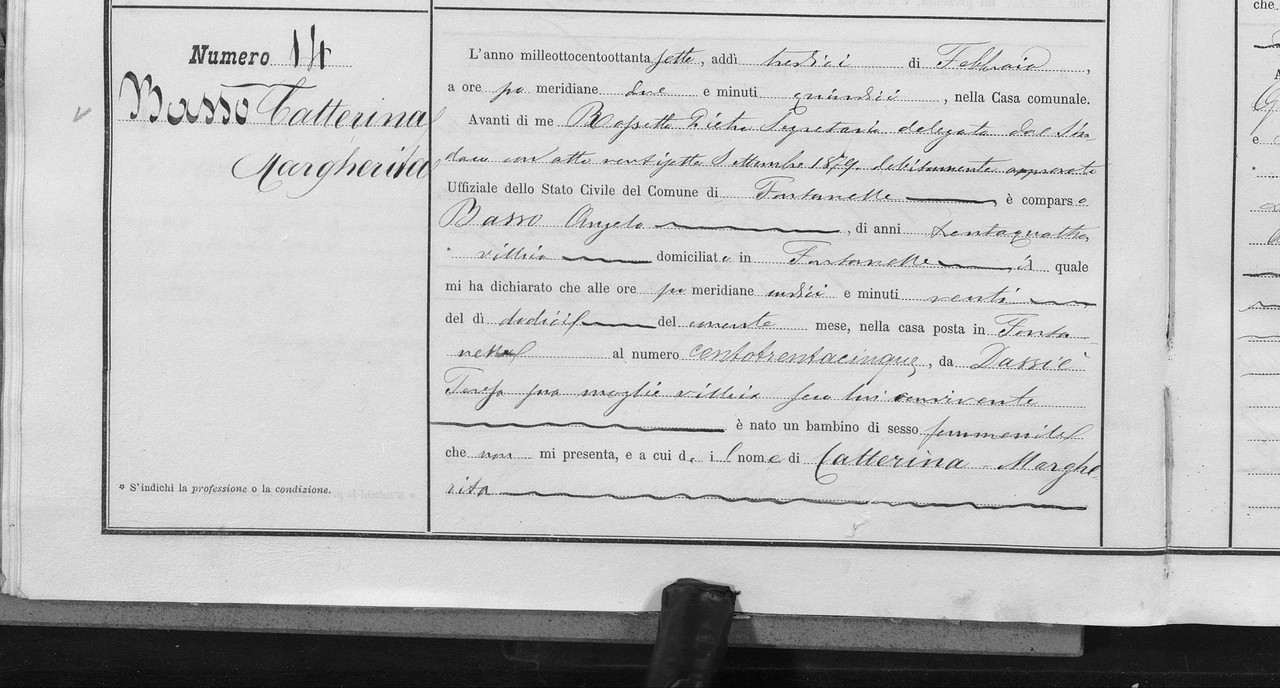 Numero 14
Basso Catterina
Margherita
* S'indichi la professione o la condizione.
L'anno milleottocentoottanta sette, addì tredici di Febbraio,
a ore po meridiane due e minuti quindici, nella Casa comunale.
Avanti di me Rossetto Pietro Segretario delegato dal Sin-
daco con atto ventisette Settembre 1879 debitamente approvato
Uffiziale dello Stato Civile del Comune di Fontanelle, è comparso
Basso Angelo, di anni trentaquattro,
* villico domiciliato in Fontanelle, il quale
mi ha dichiarato che alle ore po meridiane undici e minuti venti
del dì dodici del corrente mese, nella casa posta in Fonta-
nelle al numero centotrentacinque, da Dassiè
Teresa sua moglie villica seco lui convivente
è nato un bambino di sesso femmenile
che non mi presenta, e a cui d i l nome di Catterina-Marghe
rita
che